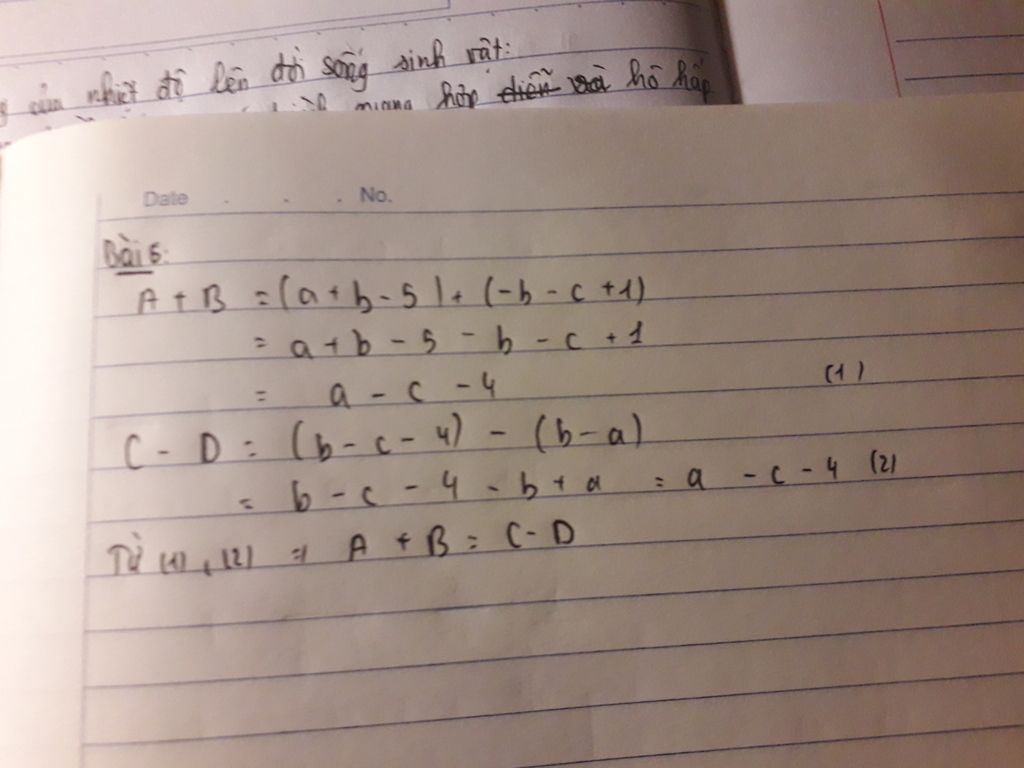 của nhiệt độ lên đời sống sinh vật:
mang hợp diễn và hô hấp
Date . . . No.
Bài 5:
A + B = (a + b - 5) + (-b - c + 1)
= a + b - 5 - b - c + 1
= a - c - 4 (1)
C - D = (b - c - 4) - (b - a)
= b - c - 4 - b + a = a - c - 4 (2)
Từ (1), (2) => A + B = C - D